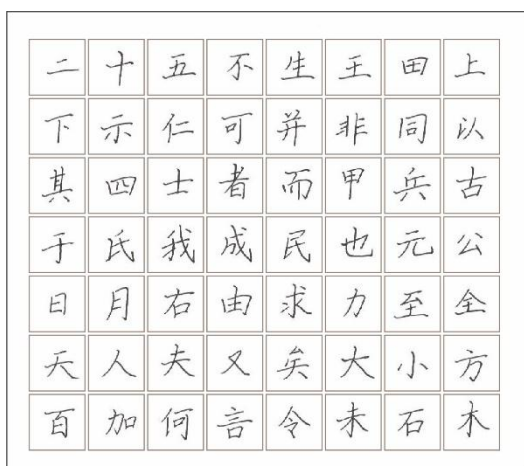 二十五不生王田上
下示仁可并非同以
其四士者而甲兵古
于氏我成民也元公
日月右由求力至全
天人夫又矣大小方
百加何言令未石木